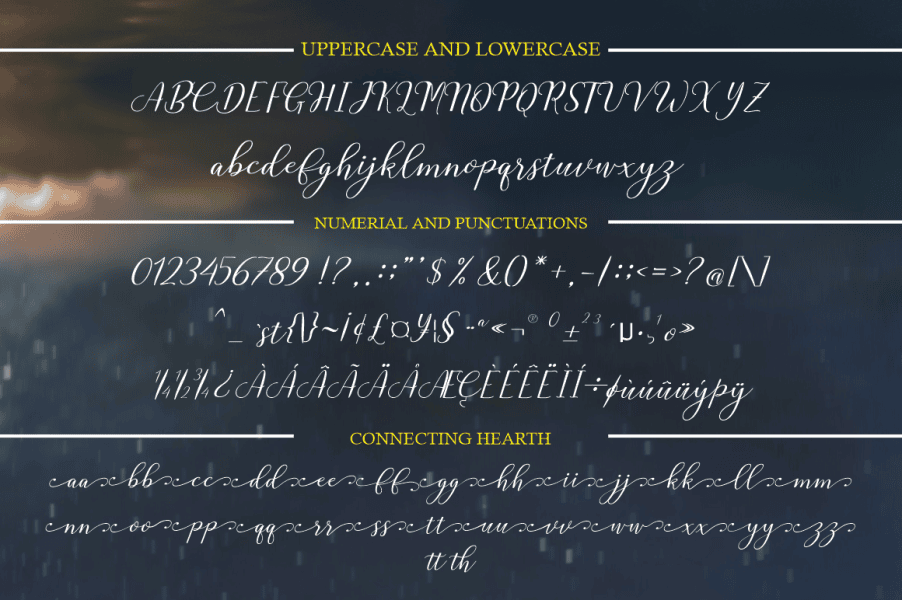 UPPERCASE AND LOWERCASE
ABCDEFGHIJKLMNOPQRSTUVWXYZ
abcdefghijklmnopqrstuvwxyz
NUMERIAL AND PUNCTUATIONS
0123456789 !?,.:;"'$%&()*+,-/:;<=>?@[\]
^_`st{\}~¡¢£¤¥¦§¨ª«¬®0±23´µ·¸1º»
¼½¾¿ÀÁÂÃÄÅÆÇÈÉÊËÌÍ÷øùúûüýþÿ
CONNECTING HEARTH
aa bb cc dd ee ff gg hh ii jj kk ll mm
nn oo pp qq rr ss tt uu vv ww xx yy zz
tt th